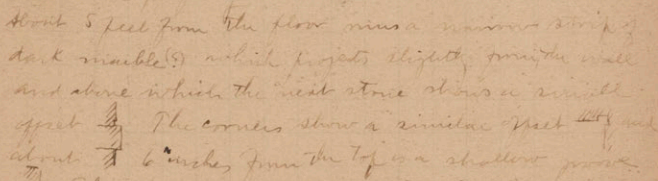 About 5 feet from the floor runs a narrow strip of
dark marble(?) which projects slightly from the wall
and above which the next stone shows a similar
offset The corners show a similar offset and
about 6 inches from the top is a shallow groove.